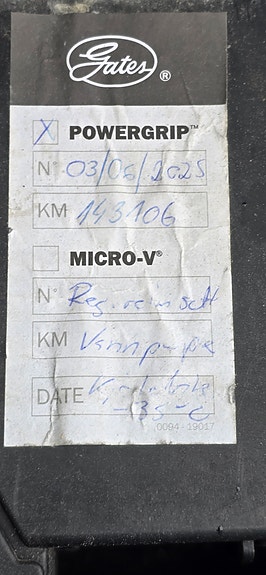 Gates®
X POWERGRIP™
N° 03/06/2025
KM 143106
MICRO-V®
N° Reg.reim sett
KM Vannpumpe
DATE
-35°C
0094 - 19017